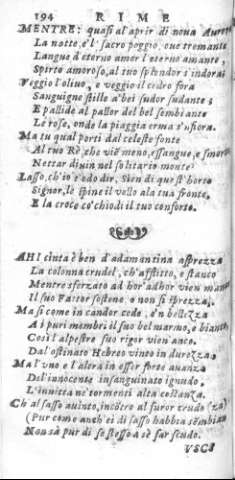 194 RIME
MENTRE: quasi al aprir di noua Aurora
La notte, e'l sacro poggio, oue tremante
Langue d'eterno amor l'eterno amante,
Spirto amoroso, al tuo splendor s'indora:
Veggio l'oliuo, e veggio il cedro fora
Sanguigne stille a' bei sudor sudante;
E pallide al pallor del bel sembiante
Le rose, onde la piaggia erma s'infiora.
Ma tu qual porti dal celeste fonte
Al tuo Rè che vien meno, essangue, e smorto
Nettar diuin nel solitario monte?
Lasso, ch'io t'odo dir, Sien di quest'horto
Signor, le spine il vello a la tua fronte,
E la croce co' chiodi il tuo conforto.
AHI cinta è ben d'adamantina asprezza
La colonna crudel, ch'afflitto, e stanco
Mentre sferzato ad hor'ad hor vien manco
Il suo Fattor sostene, e non si spezza.
Ma si come in candor ceda, e'n bellezza
A i puri membri il suo bel marmo, e bianco,
Così l'alpestre suo rigor vien'anco
Dal ostinato Hebreo vinto in durezza.
Ma l'vno e l'altra in esser forte auanza
Del'innocente insanguinato ignudo.
L'inuitta ne' tormenti alta costanza.
Ch'al sasso auinto, incôtro al furor crudo (za)
(Pur como anch'ei di sasso habbia sembian
Non sà pur di se stesso a sè far scudo.
VSCI